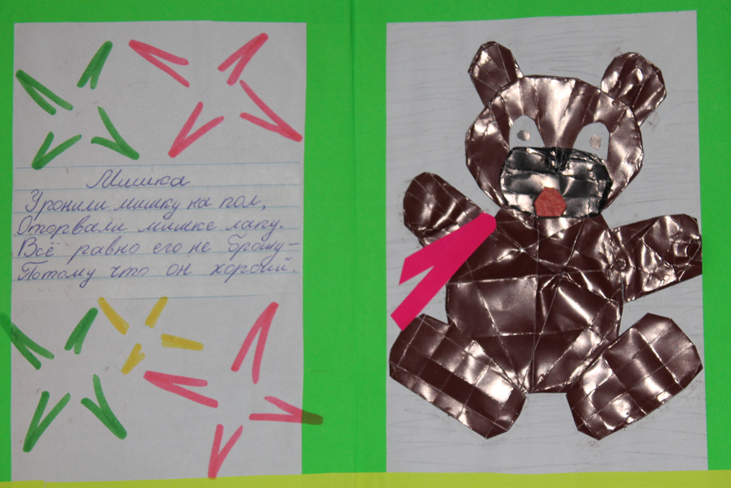 Мишка
Уронили мишку на пол,
Оторвали мишке лапу.
Всё равно его не брошу –
Потому что он хороший.